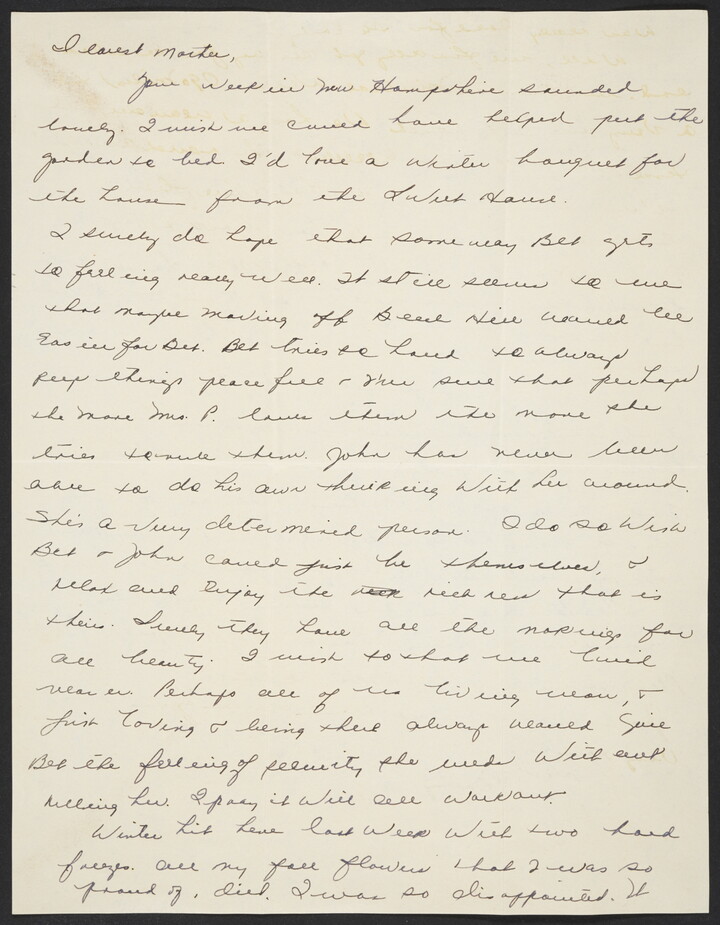 Dearest Mother,
Your week in New Hampshire sounded
lovely. I wish we could have helped put the
garden to bed. I'd love a winter bouquet for
the house from the Swett House.
I surely do hope that someway Bet gets
to feeling really well. It still seems to me
that maybe moving off Beech Hill would be
easier for Bet. Bet tries so hard to always
keep things peacefull & I'm sure that perhaps
the more Mrs. P. loves them the more she
tries to rule them. John has never been
able to do his own thinking with her around.
She's a very determined person. I do so wish
Bet & John could just be themselves, &
relax and enjoy the richness that is
theirs. Surely they have all the makings for
all beauty. I wish so that we lived
nearer. Perhaps all of us living near, &
just loving & being there always would give
Bet the feeling of security she needs without
telling her. I pray it will all work out.
Winter hit here last week with two hard
freezes. All my fall flowers that I was so
proud of, died. I was so disappointed. It